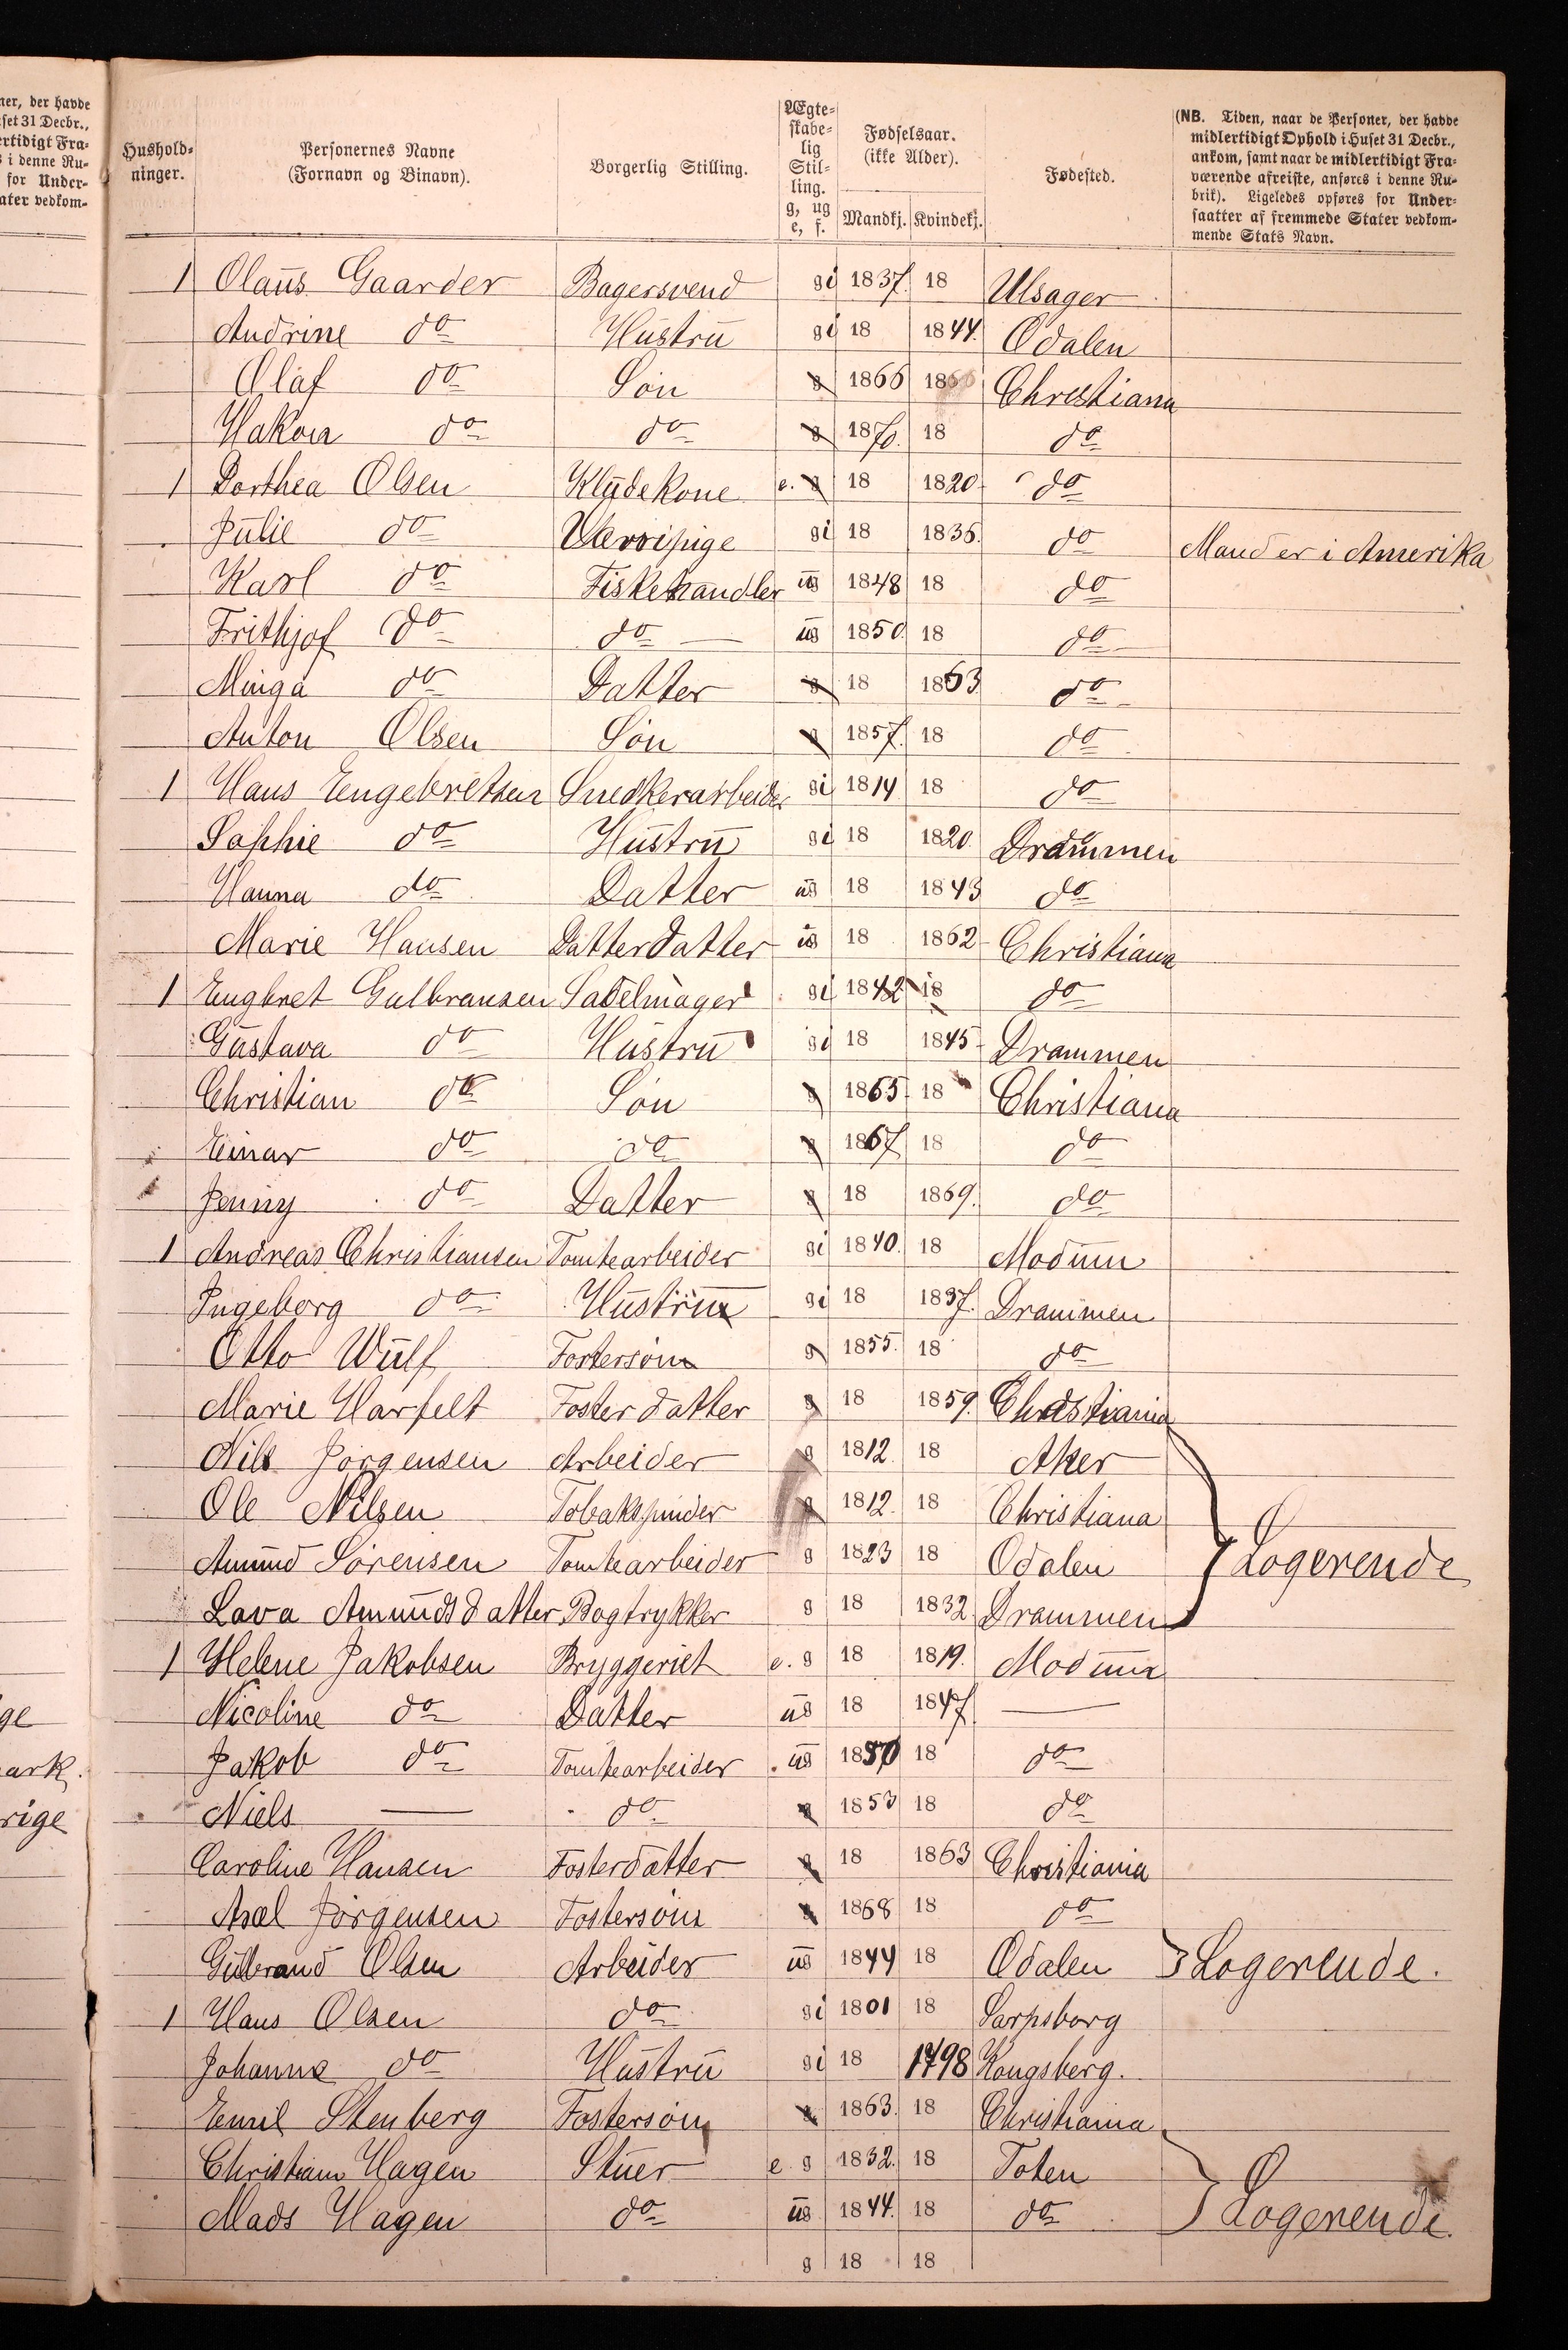 ner, der havde
set 31 Decbr.,
ertidigt Fra-
s i denne Ru-
for Under-
ater vedkom-
ge
ark.
rige
Hushold-
ninger.
Personernes Navne
(Fornavn og Binavn).
Borgerlig Stilling.
Ægte-
skabe-
lig
Stil-
ling.
g, ug
e, f.
Fødselsaar.
(ikke Alder).
Mandkj. Kvindekj.
Fødested.
(NB. Tiden, naar de Personer, der havde
midlertidigt Ophold i Huset 31 Decbr.,
ankom, samt naar de midlertidigt Fra-
værende afreiste, anføres i denne Ru-
brik). Ligeledes opføres for Under-
saatter af fremmede Stater vedkom-
mende Stats Navn.
1 Olaus Gaarder Bagersvend gi 1837. 18 Ulsager
Andrine do Hustru gi 18 1844. Odalen
Olaf do Søn g 1866 18 Christiana
Hakon do do g 1870. 18 do
1 Dorthea Olsen Kludekone e. g 18 1820 do
Julie do gi 18 1836. do Mand er i Amerika
Karl do Fiskehandler ug 1848 18 do
Frithjof do do ug 1850 18 do
Minga do Datter g 18 1863 do
Anton Olsen Søn g 1857. 18 do
1 Hans Engebretsen Snedkerarbeider gi 1814 18 do
Sophie do Hustru gi 18 1820 Drammen
Hanna do Datter ug 18 1843 do
Marie Hansen Datterdatter ug 18 1862 Christiana
1 Engbret Gulbransen Sadelmager gi 1842 18 do
Gustava do Hustru gi 18 1845 Drammen
Christian do Søn g 1865 18 Christiana
Einar do do g 1867 18 do
Jenny do Datter g 18 1869. do
1 Andreas Christiansen Tomtearbeider gi 1840. 18 Modum
Ingeborg do Hustru gi 18 1837. Drammen
Otto Wulf Fostersøn g 1855. 18 do
Marie Harfelt Fosterdatter g 18 1859. Christiania
Nils Jørgensen Arbeider g 1812 18 Aker
Ole Nilsen Tobakspinder g 1812. 18 Christiana
Amund Sørensen Tomtearbeider g 1823 18 Odalen Logerende
Lava Amundsdatter Bogtrykker g 18 1832 Drammen
1 Helene Jakobsen Bryggeriet e. g 18 1819. Modum
Nicoline do Datter ug 18 1847 —
Jakob do Tomtearbeider ug 1850 18 do
Niels — do g 1853 18 do
Caroline Hansen Fosterdatter g 18 1863 Christiania
Axel Jørgensen Fostersøn g 1868 18 do
Gulbrand Olsen Arbeider ug 1844 18 Odalen Logerende.
1 Hans Olsen do gi 1801 18 Sarpsborg
Johanne do Hustru gi 18 1798 Kongsberg.
Emil Stenberg Fostersøn g 1863. 18 Christiania
Christian Hagen Stuer e g 1832. 18 Toten
Mads Hagen do ug 1844. 18 do Logerende.
g 18 18